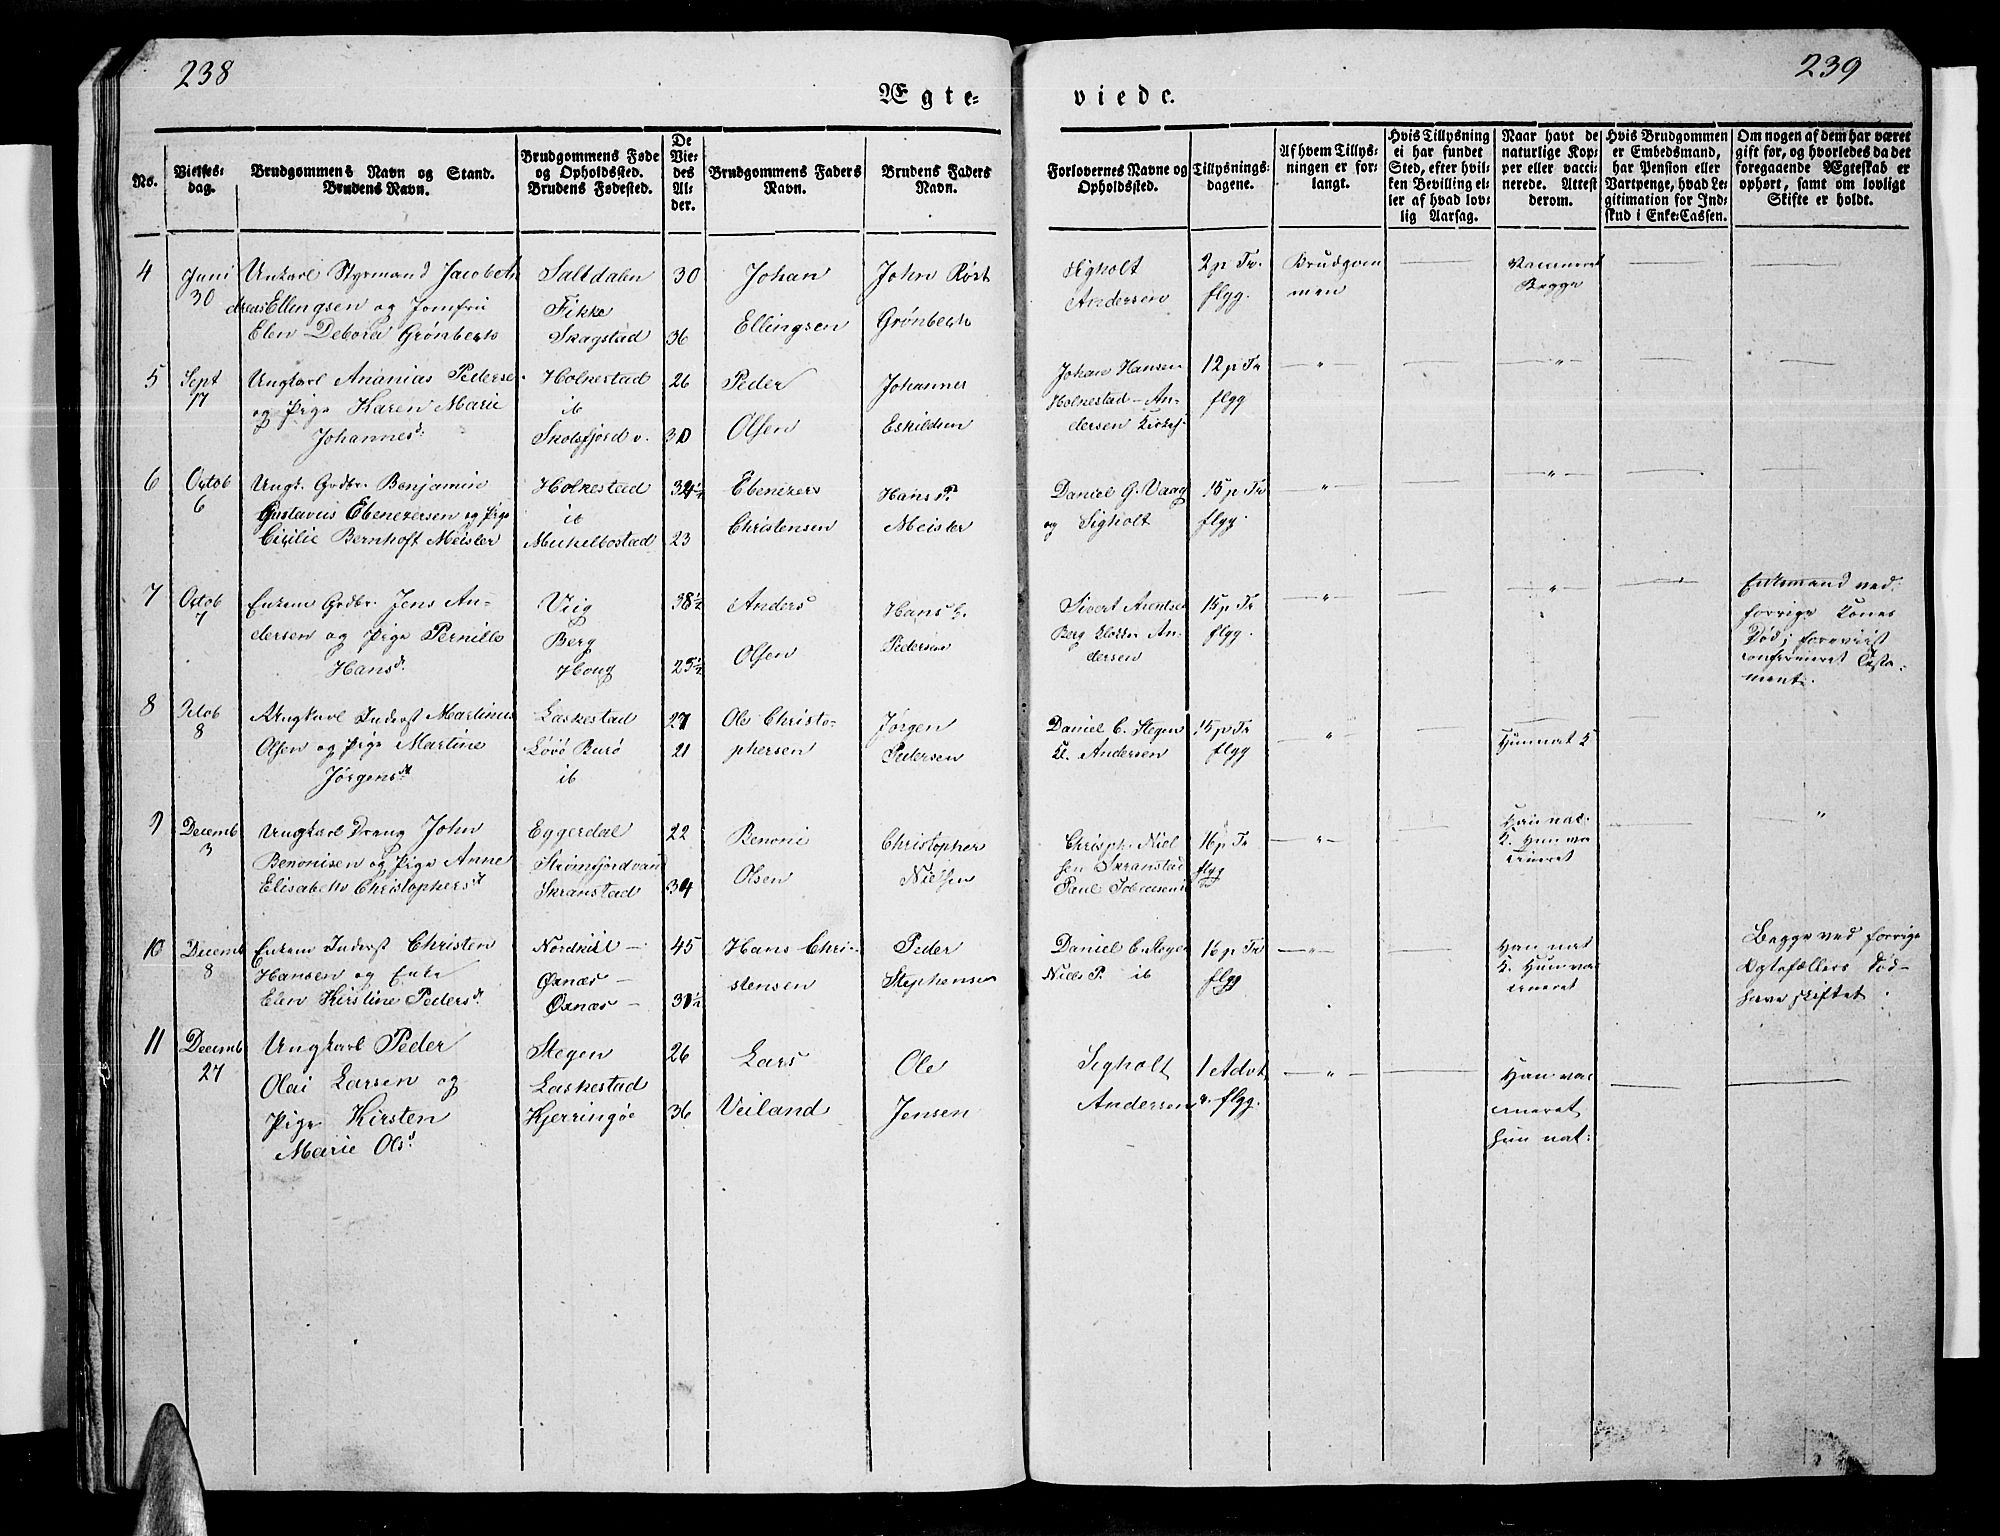 238
239
Ægte-
viede.
No.
Vielses-
dag.
Brudgommens Navn og Stand.
Brudens Navn.
Brudgommens Føde
og Opholdssted.
Brudens Fødested.
De
Vie-
des
Al-
der.
Brudgommens Faders
Navn.
Brudens Faders
Navn.
Forlovernes Navne og
Opholdssted.
Tillysnings-
dagene.
Af hvem Tillys-
ningen er for-
langt.
Hvis Tillysning
ei har fundet
Sted, efter hvil-
ken Bevilling el-
ler af hvad lov-
lig Aarsag.
Naar havt de
naturlige Kop-
per eller vacci-
nerede. Attest
derom.
Hvis Brudgommen
er Embedsmand,
har Pension eller
Vartpenge, hvad Le-
gitimation for Ind-
skud i Enke-Cassen.
Om nogen af dem har været
gift før, og hvorledes da det
foregaaende Ægteskab er
ophørt, samt om lovligt
Skifte er holdt.
4
Juni
30
Unkarl Styrmand Jacob An
dreas Ellingsen og Jomfru
Elen Debora Grønbech
Saltdalen
Skagstad
30
36
Johan
Ellingsen
John Røst
Grønbech
Sigholt
Andersen
2 p Tr.
flyg.
Brudgom
men
Vaccineret
Begge
5
Sept
17
Ungkarl Ananias Peders
og Pige Karen Marie
Johannesd.
Holkestad
ib
26
30
Peder
Olsen
Johannes
Eskildsen
Johan Hansen
Holkestad - An-
dersen
12 p Tr
flyg
6
Octob
6
Ungk. Grdbr. Benjamin
Gustavus Ebenezersen og Pige
Cicilie Bernhoft Meisler
Holkestad
ib
Mickelbostad
32 1/2
23
Ebenezers
Christensen
Hans P.
Meisler
Daniel G. Vaag
og Sigholt
15 p Tr
flyg.
7
Octob
7
Enkem Grdbr. Jens An-
dersen og Pige Pernille
Hansd.
Veig
Berg
Houg
38 1/2
25 1/2
Anders
Olsen
Hans
Pedersen
Sivert Arentse
Berg An-
dersen
15 p Tr
flyg.
Enkemand ved
forrige Kones
Død; foreviist
confirmeret Testa-
ment.
8
Octob
8
Ungkarl Inderst Martinus
Olsen og Pige Martine
Jørgensd.
Laskestad
Løvø Burø
ib
27
21
Ole Christo-
phersen
Jørgen
Pedersen
Daniel C. Stegen
Andersen
15 p Tr
flyg
9
Decemb
3
Ungkarl Dreng John
Benonisen og Pige Anne
Elisabeth Christophersd.
Eggerdal
Skranstad
22
34
Benoni
Olsen
Christopher
Nielsen
Chrisph. Niel
sen Skranstad
Paul
16 p Tr
flyg
10
Decemb
8
Enkem Inderst Christen
Hansen og Enke
Elen Kirstine Pedersd.
Nordkiil -
Øxnæs -
Øxnæs -
45
31 1/2
Hans Chri-
stensen
Peder
Stephensen
Daniel
Niels P. ib
16 p Tr
flyg
Begge ved forrige
Ægtefællers Død
have skiftet
11
Decemb
27
Ungkarl Peder
Olai Larsen og
Pige Kirsten
Marie Olsd.
Stegen
Laskestad
Kjerringøe
26
36
Lars
Veiland
Ole
Jensen
Sigholt
Andersen
1 Advt
flyg.
Han vac
cineret
hun nat: